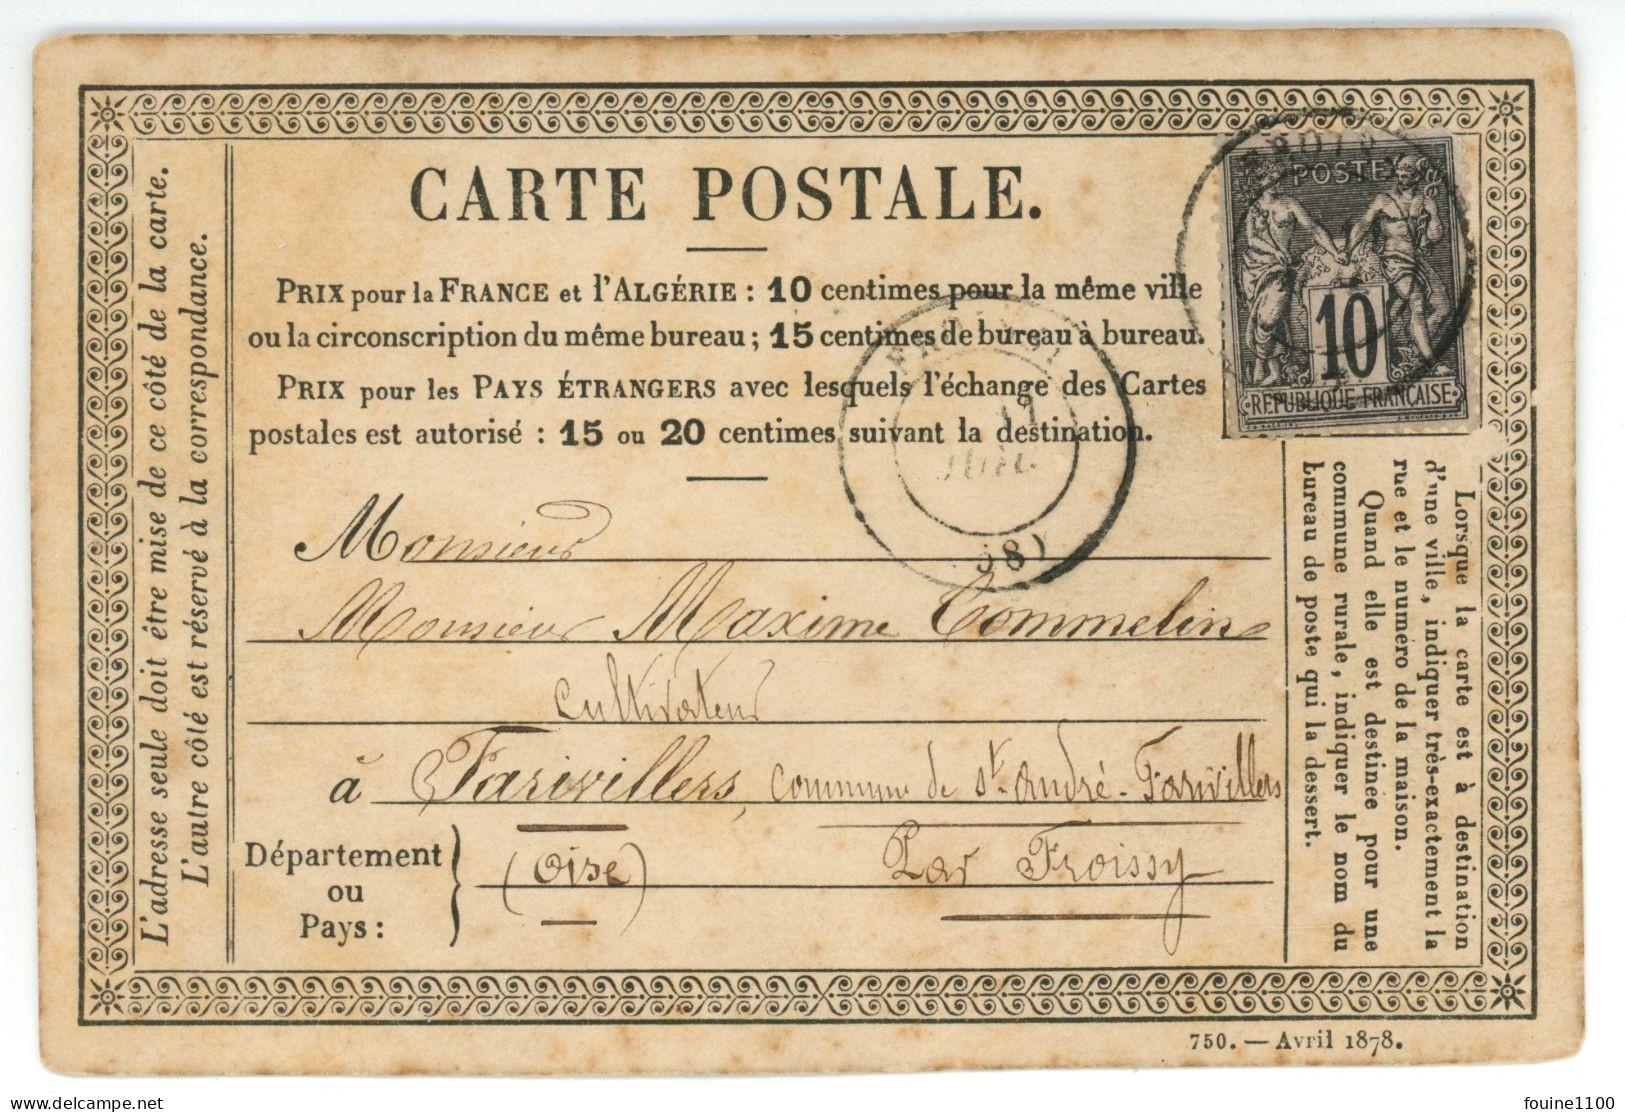 CARTE POSTALE.
PRIX pour la FRANCE et l'ALGÉRIE : 10 centimes pour la même ville
ou la circonscription du même bureau ; 15 centimes de bureau à bureau.
PRIX pour les PAYS ÉTRANGERS avec lesquels l'échange des Cartes
postales est autorisé : 15 ou 20 centimes suivant la destination.
POSTE
10
REPUBLIQUE FRANÇAISE
17
Monsieur
Monsieur Maxime Commelin
Cultivateur
à Farivillers, Commune de St. André-Farivillers
Département
ou
Pays :
(Oise)
Par Froissy
L'adresse seule doit être mise de ce côté de la carte.
L'autre côté est réservé à la correspondance.
Lorsque la carte est à destination
d'une ville, indiquer très-exactement la
rue et le numéro de la maison.
Quand elle est destinée pour une
commune rurale, indiquer le nom du
bureau de poste qui la dessert.
750. — Avril 1878.
delcampe.net
fouine1100